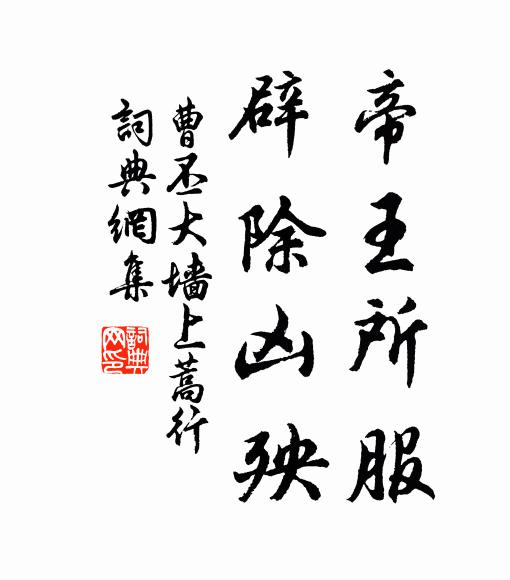 帝王所服
辟除凶殃
曹丕大墙上蒿行
詞典網集
詞典网印